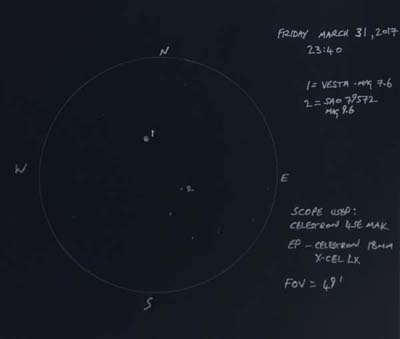 FRIDAY MARCH 31, 2017
23:40
N
1 = VESTA - MAG 7.6
2 = SAO 79572
MAG 9.6
1
W
2
E
SCOPE USED:
CELESTRON 4SE MAK
EP - CELESTRON 18mm
X-CEL LX
FOV = 49'
S